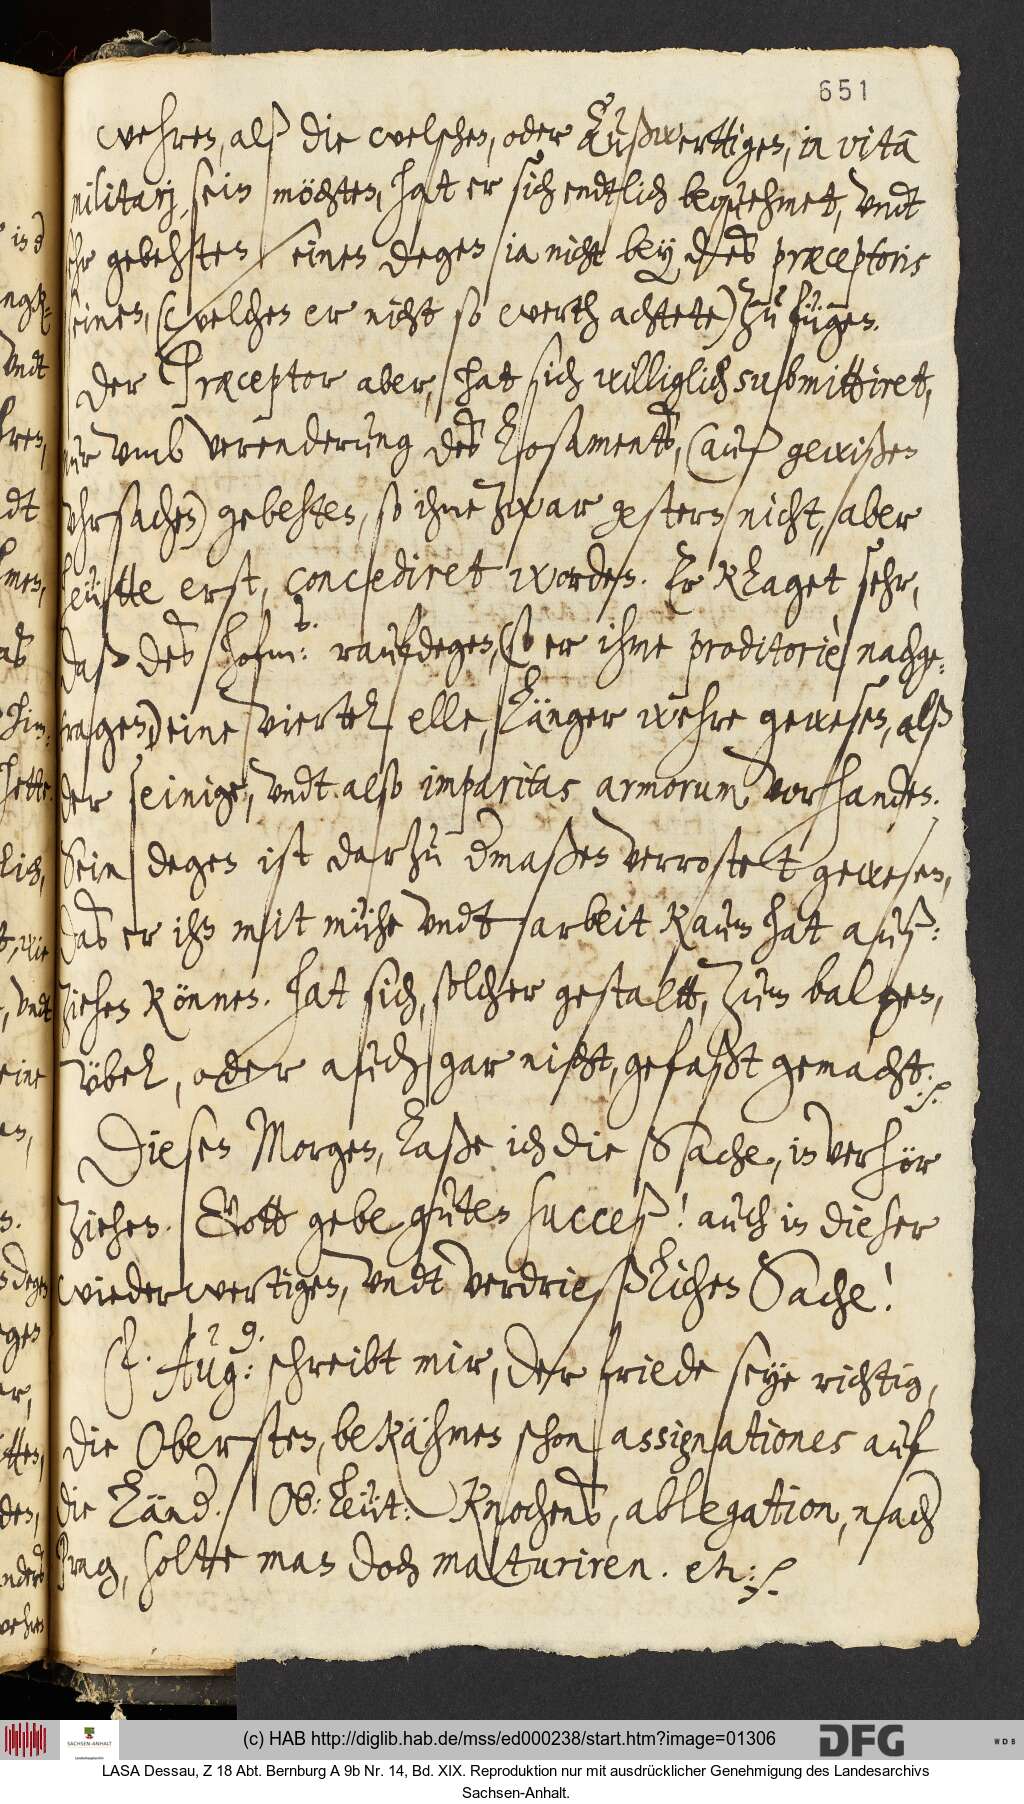 651
wehren, alß die welschen, oder Außwerttigen, in vitâ
militarj, sein möchten, hat er sich endtlich bequehmet, undt
ihr gebehten einen degen ia nicht bey des præceptoris
seinen, (welchen er nicht so werth achtete) zu fügen.
Der Præceptor aber, hat sich williglich submittiret,
nur umb verenderung des Losaments, (auß gewißen
uhrsachen) gebehten, so ihme zwar gestern nicht, aber
heütte erst, concediret worden. Er klaget sehr,
daß des Hofm: raufdegen, (so er ihme proditoriè nachge-
tragen,) eine viertel elle, länger wehre gewesen, alß
der seinige, undt also imparitas armorum vorhanden.
Sein degen ist darzu dermaßen verrostet gewesen,
das er ihn mit mühe undt arbeit kaum hat auß:
ziehen können. hat sich, solcher gestaltt, zum balgen,
übel, oder auch gar nicht, gefaßt gemacht. ./.
Diesen Morgen, laße ich die Sache, in verhör
ziehen. Gott gebe guten succeß! auch in dieser
wiederwertigen, undt verdrießlichen Sache!
F. Aug: schreibt mir, der friede seye richtig,
die Obersten, bekähmen schon assignationes auf
die Länd. Ob: Leüt: Knochens, ablegation, nach
Prag, solte man doch maturiren. etc: ./.
(c) HAB http://diglib.hab.de/mss/ed000238/start.htm?image=01306
SACHSEN-ANHALT
DFG
WDB
LASA Dessau, Z 18 Abt. Bernburg A 9b Nr. 14, Bd. XIX. Reproduktion nur mit ausdrücklicher Genehmigung des Landesarchivs
Sachsen-Anhalt.